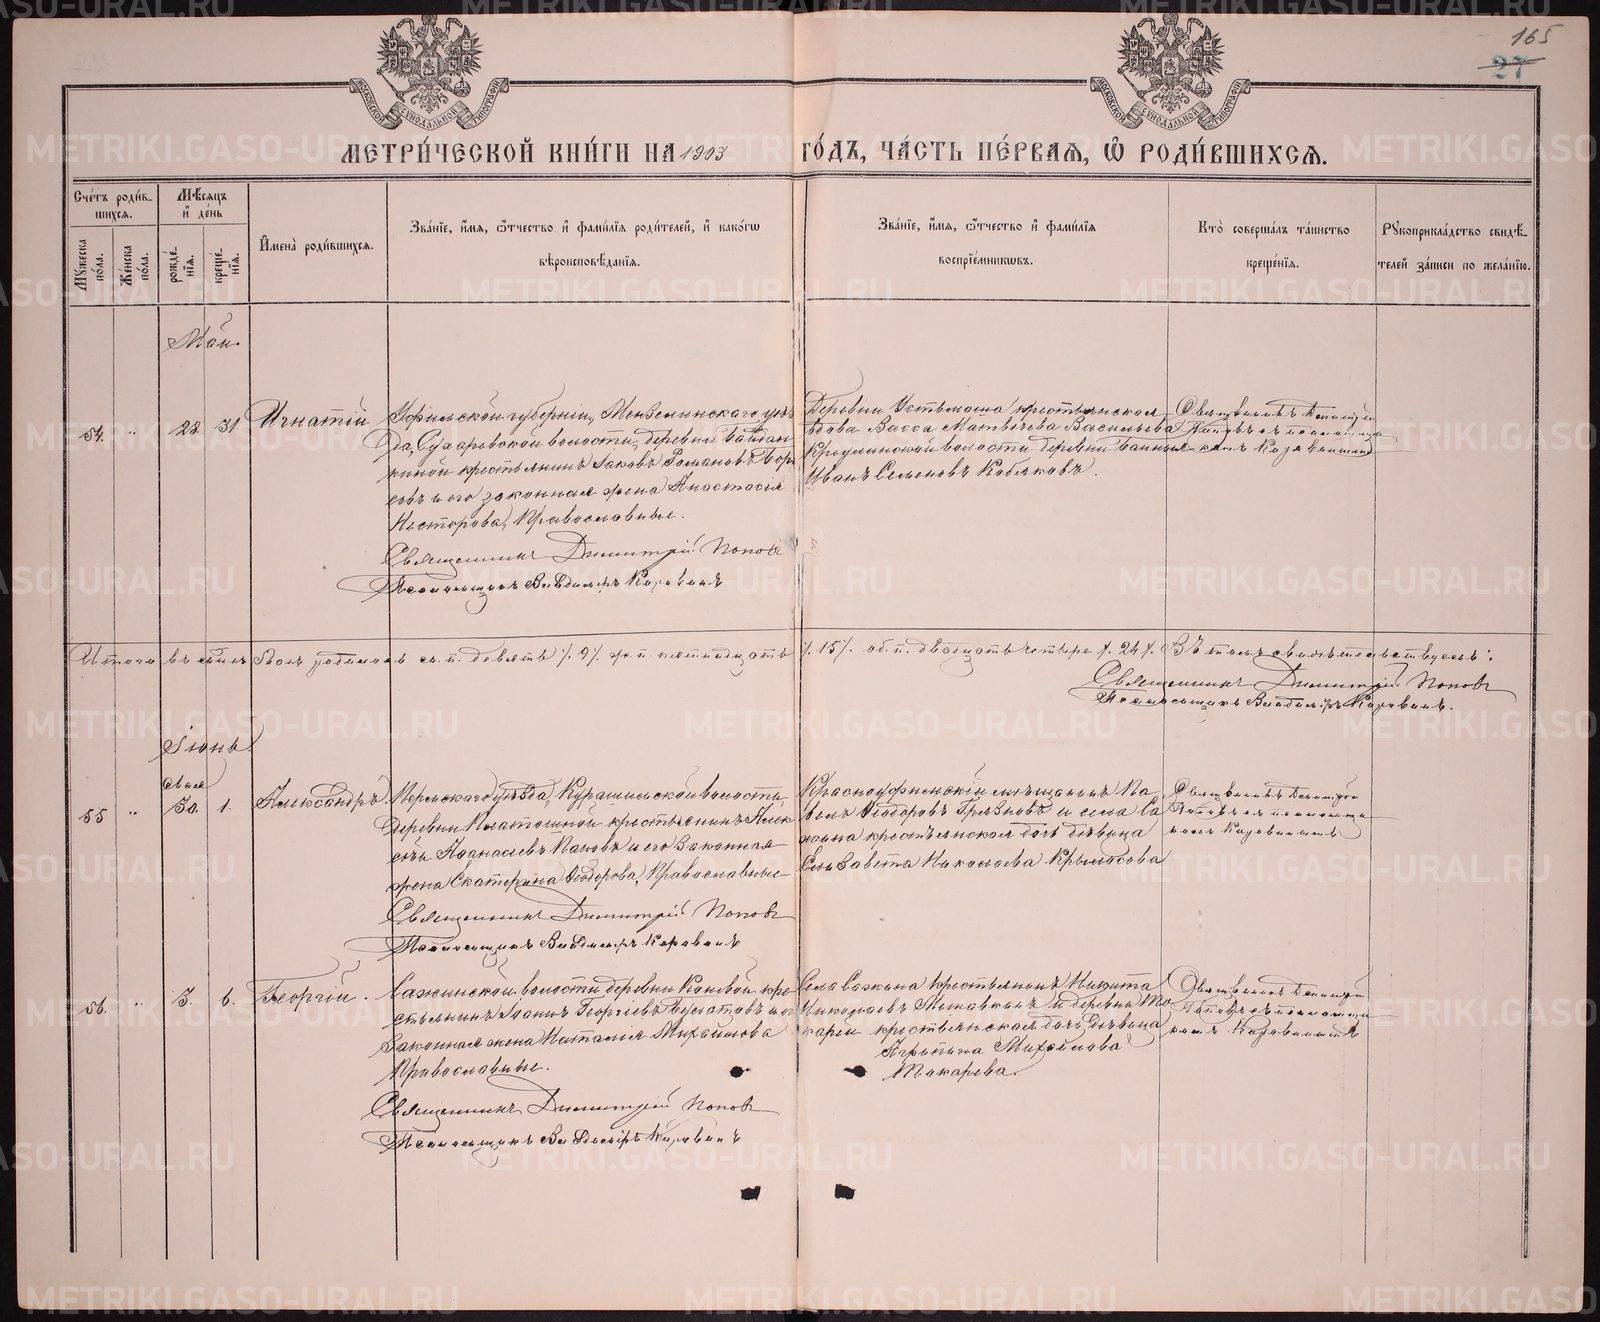 165
27
МЕТРИ́ЧЕСКОЙ КНИ́ГИ НА 1903 ГО́ДЪ, ЧА́СТЬ ПЕ́РВАЯ, Ѡ РОДИ́ВШИХСЯ.
Сче́тъ роди́в-
шихся.
Мꙋжеска по́ла.
Же́нска по́ла.
Мѣ́сяцъ
и҆ де́нь
рожде́-
нїѧ.
креще́-
нїѧ.
И҆мена̀ роди́вшихся.
Зва́нїе, и҆́мя, ѻ҆́тчество и҆ фами́лїя роди́телей, и҆ како́гѡ
вѣроисповѣ́данїя.
Зва́нїе, и҆́мя, ѻ҆́тчество и҆ фами́лїя
воспрїе́мникѡвъ.
Кто̀ соверша́лъ та́инство
креще́нїя.
Рꙋкоприкла́дство свидѣ́-
телей за́писи по жела́нїю.
Май.
54. " 28 31 Игнатій
Уфимской губерніи, Мензелинскаго уѣз-
да, Сухаревской волости, деревни
крестьянинъ Іаковъ Романовъ Бор-
совъ и его законная жена Анастасія
Несторова, Православные.
Священникъ Димитрій Поповъ
Псаломщикъ Владиміръ Караваевъ
Деревни Устьмоша крестьянская
вдова Васса Матвѣева Васильева
волости деревни
Иванъ Семеновъ Кобяковъ.
Священникъ Димитрій
Поповъ съ псаломщи
комъ
Итого въ маѣ мѣсяцѣ родилось м. п. девять /. 9/. ж. п. пятнадцать /. 15/. об. п. двадцать четыре /. 24/. Въ томъ свидѣтельствуемъ:
Священникъ Димитрій Поповъ
Псаломщикъ Владиміръ Караваевъ.
Іюнь
мая
55 " 30. 1. Александръ.
Пермскаго уѣзда, Курашимской волости
деревни Платошиной крестьянинъ Алек-
сѣй Аѳанасіевъ Пановъ и его законная
жена Екатерина Ѳеодорова, Православные
Священникъ Димитрій Поповъ
Псаломщикъ Владиміръ Караваевъ
Красноуфимскій мѣщанинъ Па-
велъ Ѳеодоровъ Грязновъ и села Са-
жина крестьянская дочь дѣвица
Елизавета Николаева Крылосова
Священникъ Димитрій
Поповъ съ псаломщи
комъ
56. " 3. 6. Георгій.
Сажинской волости деревни Коневой кре-
стьянинъ Іоаннъ Георгіевъ и его
законная жена Наталія Михайлова
Православные.
Священникъ Димитрій Поповъ
Псаломщикъ Владиміръ Караваевъ
Села Сажина крестьянинъ Никита
Николаевъ и деревни То-
карей крестьянская дочь дѣвица
Агрипина Михайлова
Токарева.
Священникъ Димитрій
Поповъ съ псаломщи
комъ
METRIKI.GASO-URAL.RU